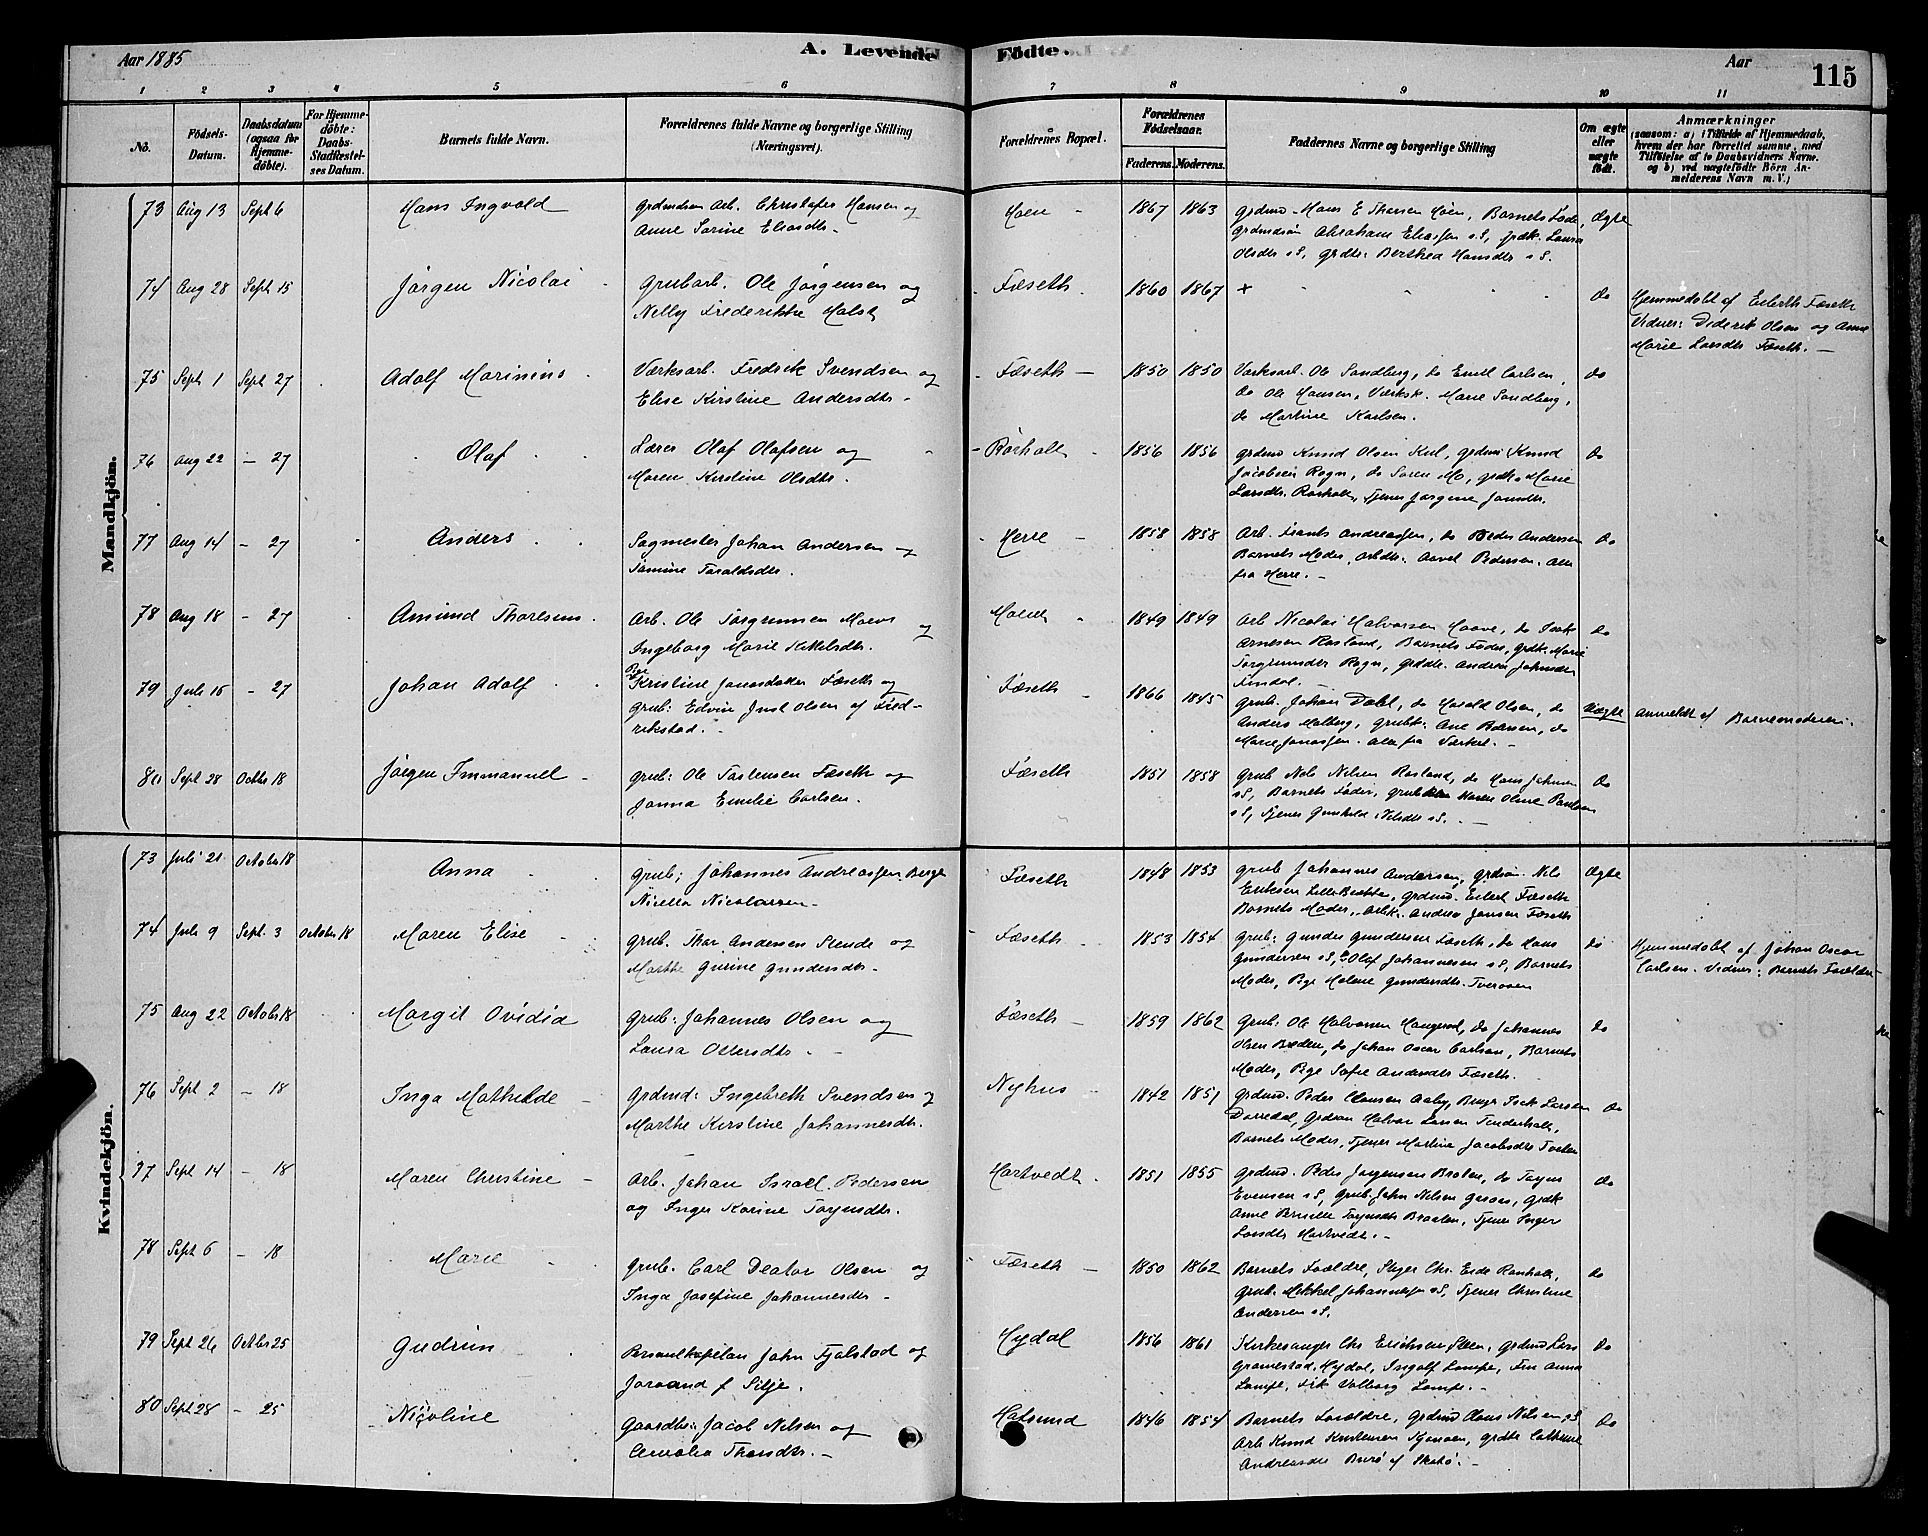 Aar 1885
A. Levende Födte.
Aar
115
1 2 3 4 5 6 7 8 9 10 11
No.
Födsels-Datum.
Daabsdatum (ogsaa for Hjemmedöbte).
For Hjemmedöbte: Daabs-Stadfæstelses Datum.
Barnets fulde Navn.
Forældrenes fulde Navne og borgerlige Stilling (Næringsvei).
Forældrenes Bopæl.
Forældrenes Födselsaar.
Faderens. Moderens.
Faddernes Navne og borgerlige Stilling
Om ægte eller uægte födt.
Anmærkninger
(saasom: a) i Tilfælde af Hjemmedaab,
hvem der har forrettet samme, med
Tilföielse af to Daabsvidners Navne.
og b) ved uægtefödte Börn An-
melderens Navn m. V.)
Mandkjön.
73 Aug 13 Sept 6 Hans Ingvold
Grdmdsøn Arb. Christofer Hansen og
Anne Sorine Eliasdtr.
1867 1863
Barnets Fader,
Abraham Eliassen sS,
Olsdtr sS, Berthea Hansdtr sS.
Ægte
74 Aug 28 Sept 15 Jørgen Nicolai
Grubarb. Ole Jørgensen og
Nelly Frederikke Holst
Fæseth
1860 1867 +
do
Hjemmedøbt af Eilerth Fæseth
Vidner: Diderik Olsen og Anne
Marie Larsdtr Fæseth.
75 Sept 1 Sept 27 Adolf Marinius
Værksarb. Fredrik Svendsen og
Elise Kirstine Andersdtr
Fæseth
1850 1850
Værksarb. Ole Sandberg, do Emil Carlsen,
do Ole Hansen, Værksk. Marie Sandberg,
do Martine Karlsen.
do
76 Aug 22 - 27 Olaf
Lærer Olaf Olafsen og
Maren Kirstine Olsdtr.
Rørholt
1856 1856
Grdmd Knud Olsen Kil, Grdmd Knud
Jacobsen Rogn, do Søren Mo, Grdk. Marie
Larsdtr Rørholt, Tjener Jørgine Jansdtr.
do
77 Aug 14 - 27 Anders
Sagmester Johan Andersen og
Tomine Taraldsdtr.
Herre
1858 1858
Arb. Frants Andreassen, do Peder Andersen
Barnets Moder, Aavel Pedersen. Alle
fra Herre.
do
78 Aug 18 - 27 Amund Thorlsens
Arb. Ole Torgrimsen Moen og
Ingeborg Marie Kittelsdtr.
Moen
1849 1849
Arb Nicolai Halvorsen Haave, do Isak
Arnesen Rosland, Barnets Fader, Grdk. Marie
Torgrimsdtr Rogn, Andrea Johnsdtr
Findal.
do
79 Juli 16 - 27 Johan Adolf
Pge Kristine Jonasdatter Fæseth og
Grub: Edvin Just Olsen af Fred-
rikstad.
Fæseth
1866 1845
Grub. Johan Dahl, do Harald Olsen, do
Anders Malberg, Grubk. Ane Børesen, do
Marie Jonassen. Alle fra Værket.
Uægte
Anmeldt af Barnemoderen.
80 Sept 28 Octbr 18 Jørgen Immanuel
Grub: Ole Tostensen Fæseth og
Janna Emilie Carlsen.
Fæseth
1851 1858
Grub Nels Nilsen Rosland, do Hans Johnsen
sS, Barnets Fader, Maren Oline Paulsen
sS, Tjener Gunhild Nilsdtr sS.
do
Kvindekjön.
73 Juli 21 October 18 Anna
Grub; Johannes Andreassen Berge
Nicella Nicolaisen
Fæseth
1848 1853
Grub Johannes Andersen, Grdsøn. Nils
Eriksen Lille Bratte, Grdmd. Eilert Fæseth
Barnets Moder, Arbk. Andrea Jansen Fæseth
Ægte
74 Juli 9 Sept. 3 October 18 Maren Elise
Grub. Thor Andersen Stende og
Marthe Gurine Gundersdtr.
Fæseth
1853 1854
Grub: Gunder Gundersen Fæseth, do Hans
Gundersen sS, do Olaf Johannesen sS, Barnets
Moder, Pige Helene Gundersdtr Tveraaen
do
Hjemmedøbt af Johan Oscar
Carlsen. Vidner: Barnets Forældre
75 Aug 22 October 18 Margit Ovidia
Grub: Johannes Olsen og
Laura Ottersdtr.
Fæseth
1859 1862
Grub: Ole Halvorsen Haugerød, do Johannes
Olsen Breden, do Johan Oscar Carlsen, Barnets
Moder, Pige Sofie Andersdtr Fæseth.
do
76 Sept 2 - 18 Inga Mathilde
Grdmd: Ingebreth Svendsen og
Marthe Kirstine Johannesdtr.
Nyhus
1842 1851
Grdmd. Peder Clausen Aaby, Bruger Isak Larsen
Dørredal, Grdsøn Halvor Larsen Tinderholt,
Barnets Moder, Tjener Martine Jacobsdtr
do
77 Sept 14 - 18 Maren Christine
Arb. Johan Israel Pedersen
og Inger Karine Torjusdtr.
Hartvedt
1851 1855
Grdmd. Peder Jørgensen Braten, do Torjus
Evensen sS, Grub. John Nilsen, Grdk
Anne Pernille Torjusdtr Braaten, Tjener Inger
Larsdtr Hartvedt.
do
78 Sept 6 - 18 Marie
Grub. Carl Deator Olsen og
Inga Josefine Johannesdtr
Fæseth
1850 1862
Barnets Forældre, Stiger Chr. Eide Rønholt,
Grub. Mekkel Johannessen sS, Tjener Christine
Andersen sS.
do
79 Sept 26 Octbr 25 Gudrun
Personelkapellan John Fjalstad og
Joraand f Silje.
Hydal
1856 1861
Kirkesanger Chr Erichsen Steen, Grdmd Lars
Gramestad Hydal, Ingolf Lampe, Fru Anna
Lampe, Frk Valborg Lampe.
do
80 Sept 28 - 25 Nicoline
Gaardbr: Jacob Nilsen og
Amalia Thorsdtr.
Hafsund
1846 1854
Barnets Forældre, Grdmd Claus Nilsen sS
Arb Knud Knudsen Kjønøen, Cathrine
Andreasdtr Burø af Skatø.
do